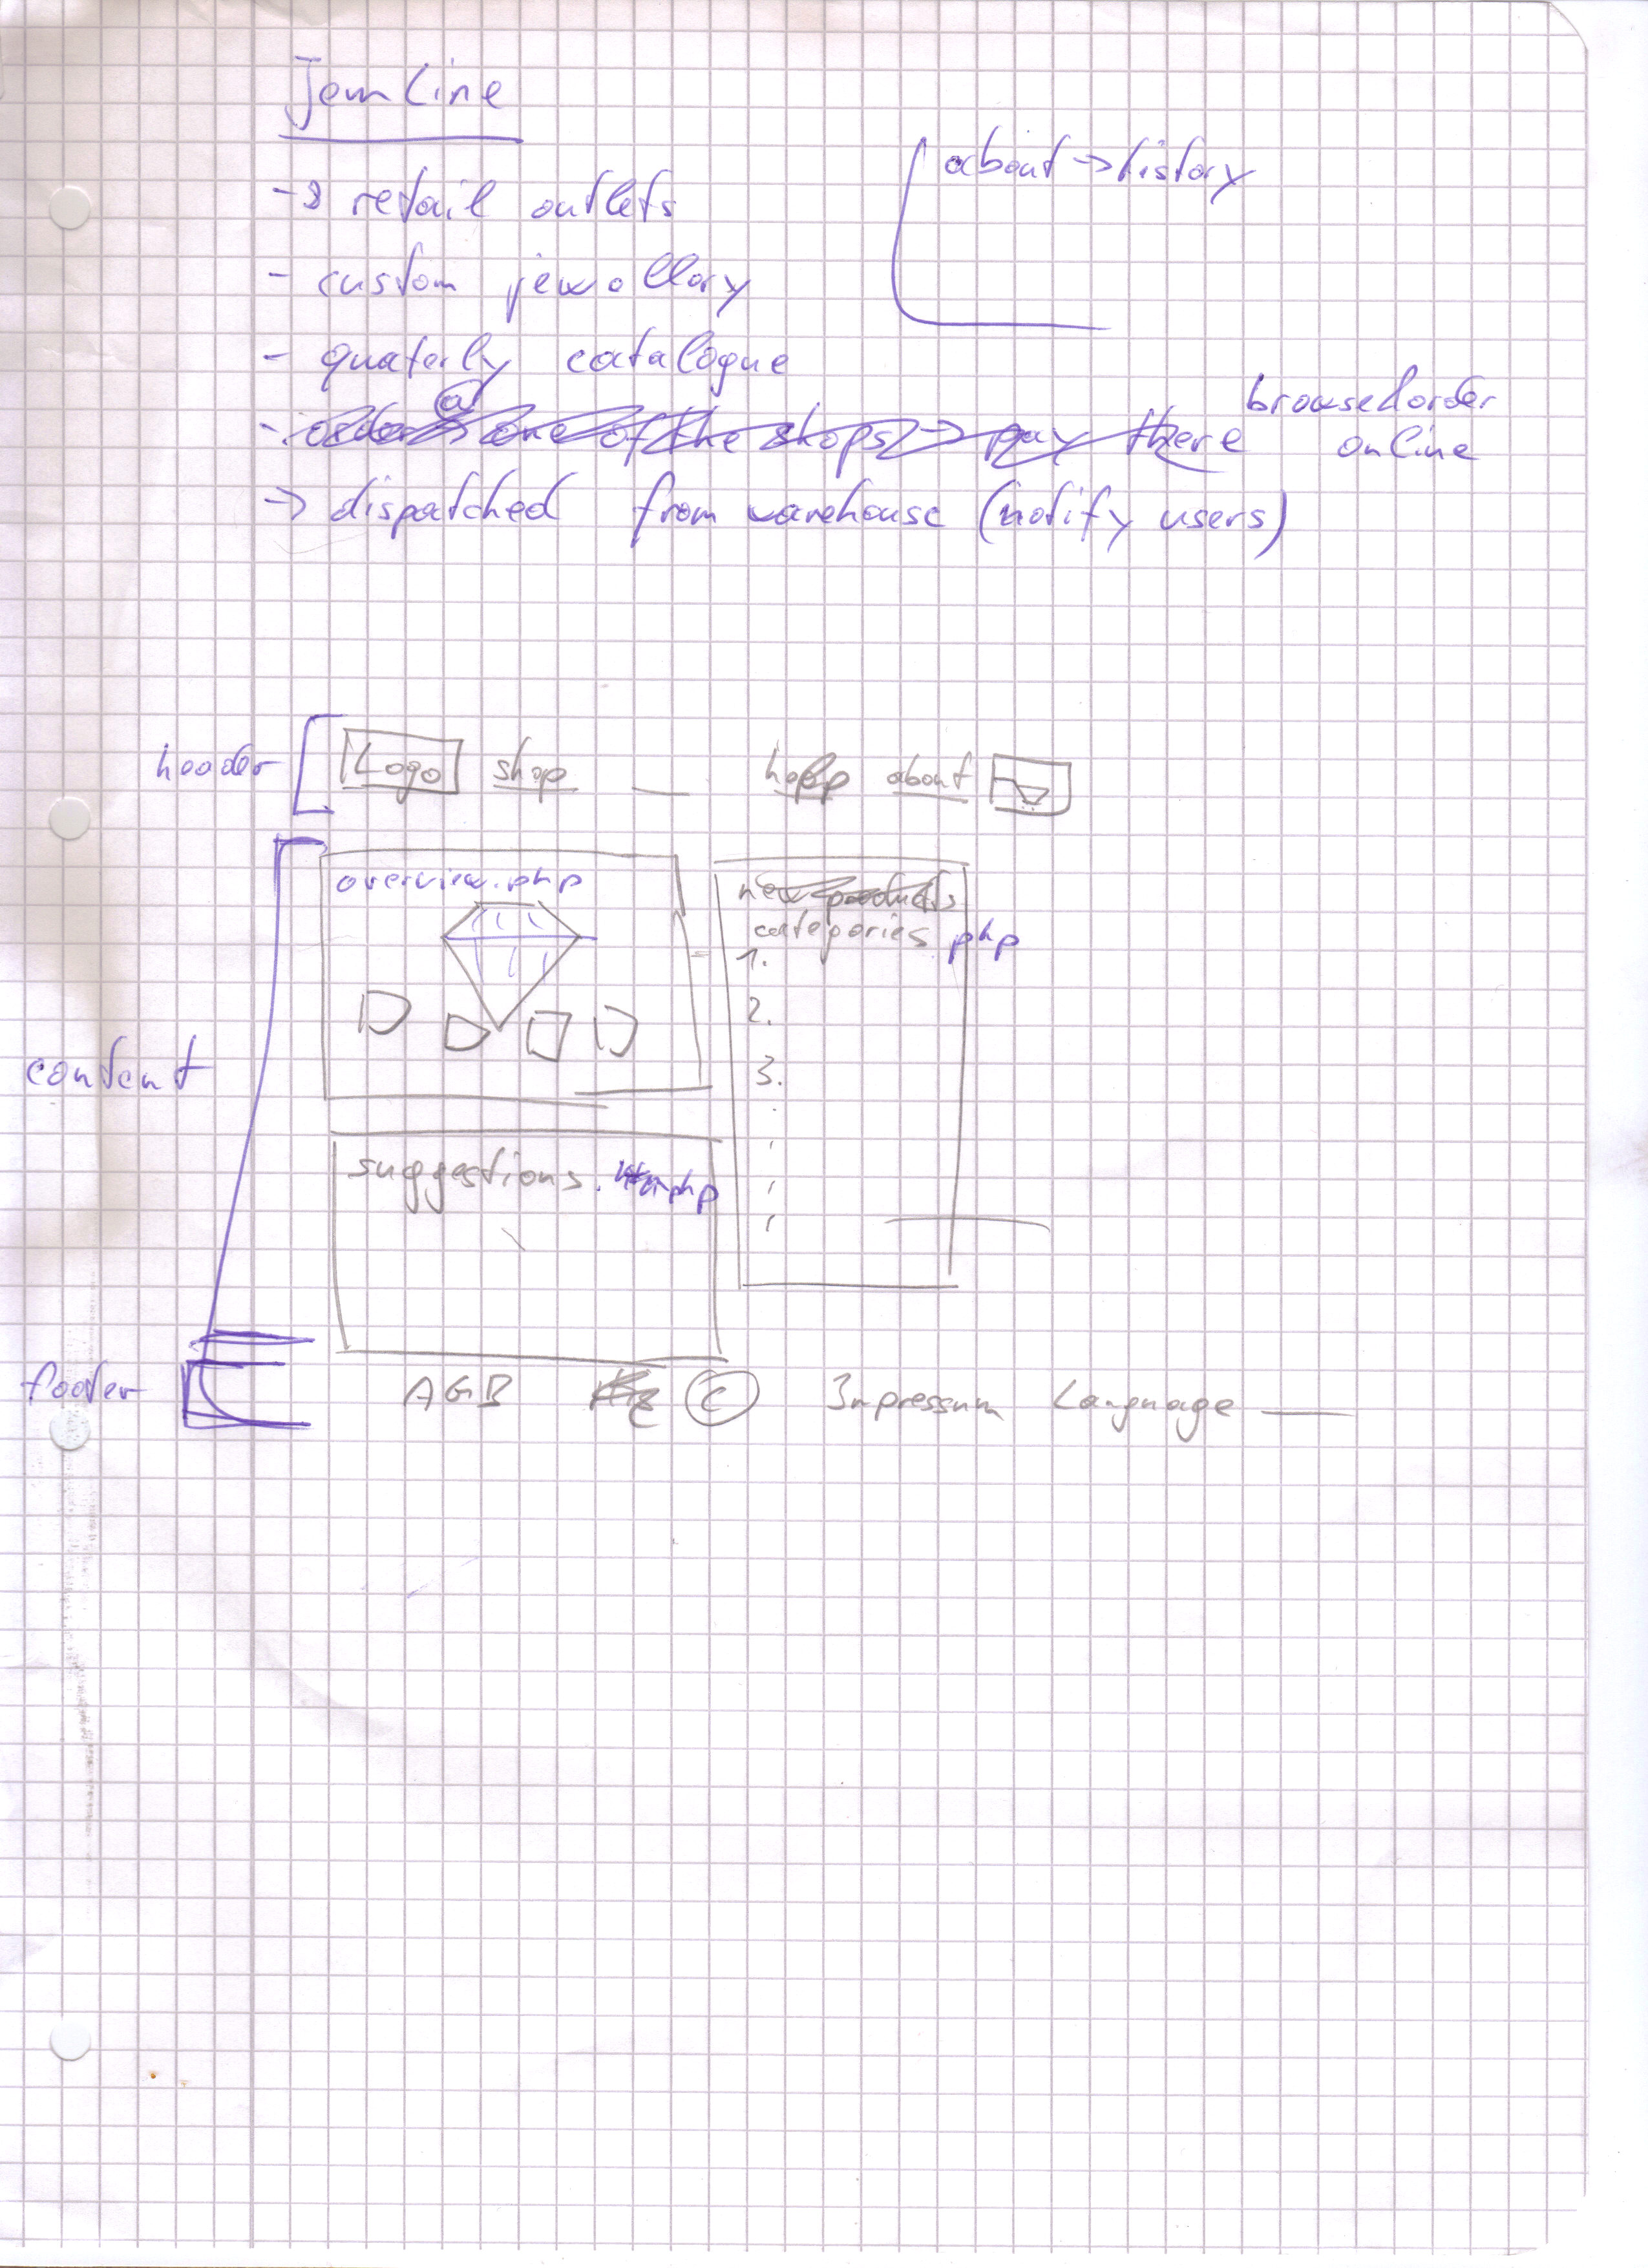 JemLine
about -> history
- 8 retail outlets
- custom jewellery
- quaterly catalogue
- order @ one of the shops -> pay there browse & order
online
-> dispatched from warehouse (notify users)
header Logo shop help about
overview.php new products
categories.php
1.
2.
3.
content
suggestions.php
footer AGB © Impressum Language